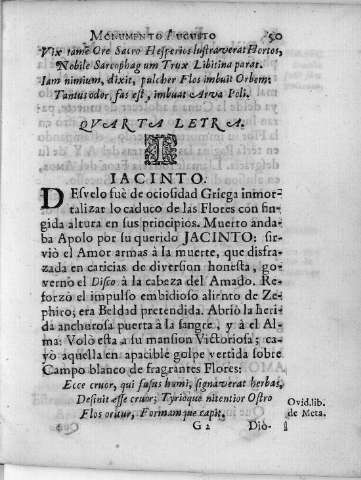 MONUMENTO AUGUSTO 50
Vix tamẽ Ore Sacro Hesperios lustraverat Hortos,
Nobile Sarcophagum Trux Libitina parat.
Iam nimium, dixit, pulcher Flos imbuit Orbem:
Tantus odor, fas est, imbuat Arva Poli.
QVARTA LETRA.
I
JACINTO.
DEsvelo fuè de ociosidad Griega inmor-
talizar lo caduco de las Flores con fin-
gida altura en sus principios. Muerto anda-
ba Apolo por su querido JACINTO: sir-
viò el Amor armas à la muerte, que disfra-
zada en caricias de diversion honesta, go-
vernò el Disco à la cabeza del Amado. Re-
forzò el impulso embidioso aliento de Ze-
phico; era Beldad pretendida. Abriò la heri-
da anchurosa puerta à la sangre, y à el Al-
ma: Volò esta a su mansion Victoriosa; ca-
yò aquella en apacible golpe vertida sobre
Campo blanco de fragrantes Flores:
Ecce cruor, qui fusus humi, signaverat herbas,
Desinit esse cruor; Tyrioque nitentior Ostro
Flos oritur, Formamque capit,
Ovid. lib.
de Meta.
G2 Dio-